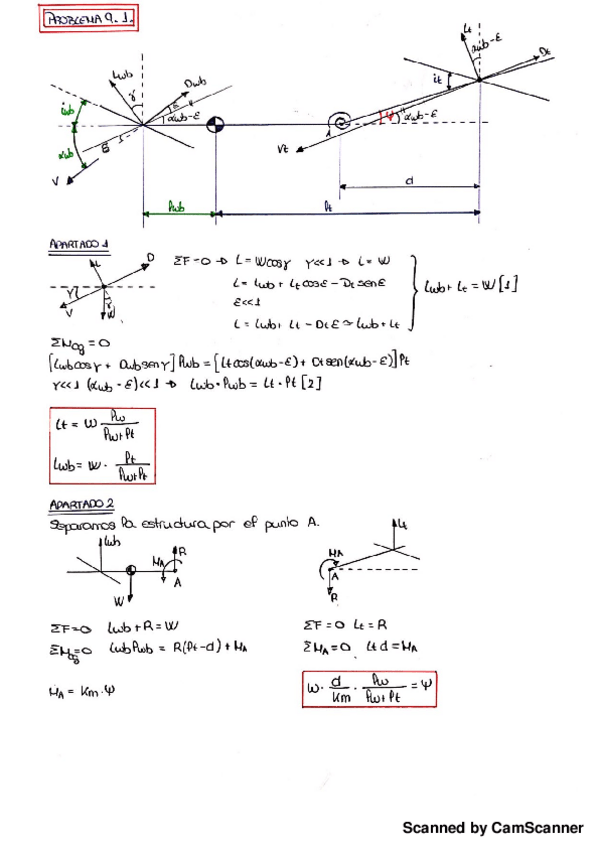 PROBLEMA 9.1.
Lwb γ Dwb ε αwb-ε
iwb αwb V
Lt αwb-ε Dt it
A ψ αwb-ε Vt
d
lwb lt
APARTADO 1
L D V γ W
ΣF=0 → L = Wcosγ γ<<1 → L = W
L = Lwb + Lt cosε - Dt senε
ε<<1
L = Lwb + Lt - Dt ε ≃ Lwb + Lt
Lwb + Lt = W [1]
ΣMcg = 0
[Lwb cosγ + Dwb senγ] lwb = [Lt cos(αwb-ε) + Dt sen(αwb-ε)] lt
γ<<1 (αwb-ε)<<1 → Lwb·lwb = Lt·lt [2]
Lt = W lw/(lw+lt)
Lwb = W · lt/(lw+lt)
APARTADO 2
Separamos la estructura por el punto A.
Lwb MA R A W
MA A R Lt
ΣF=0 Lwb + R = W
ΣMcg=0 Lwb lwb = R(lt-d) + MA
MA = Km·ψ
ΣF=0 Lt = R
ΣMA=0 Lt d = MA
W · d/Km · lw/(lw+lt) = ψ
Scanned by CamScanner